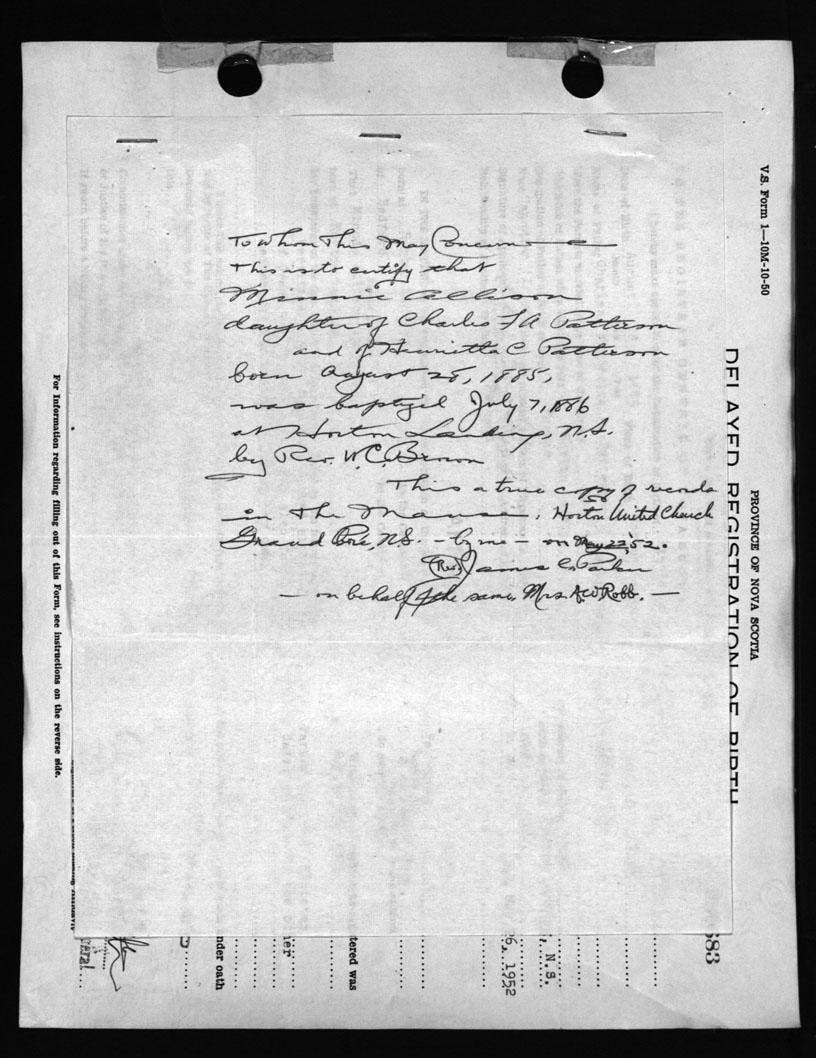 To Whom This May Concern
This is to certify that
Minnie Allison
daughter of Charles F A Patterson
and of Henrietta C Patterson
born August 28, 1885,
was baptized July 7, 1886
at Horton Landing, N.S.
by Rev. W.C. Brown
This a true copy of records
in the Manse, Horton United Church
Grand Pré, N.S. - by me - on May 22, '52.
(Rev.) James C. Parker
- on behalf of the same, Mrs. A.W. Robb. -
V.S. Form 1—10M-10-50
PROVINCE OF NOVA SCOTIA
DELAYED REGISTRATION OF BIRTH
For Information regarding filling out of this Form, see instructions on the reverse side.
683
, N.S.
26, 1952
tered was
her
nder oath